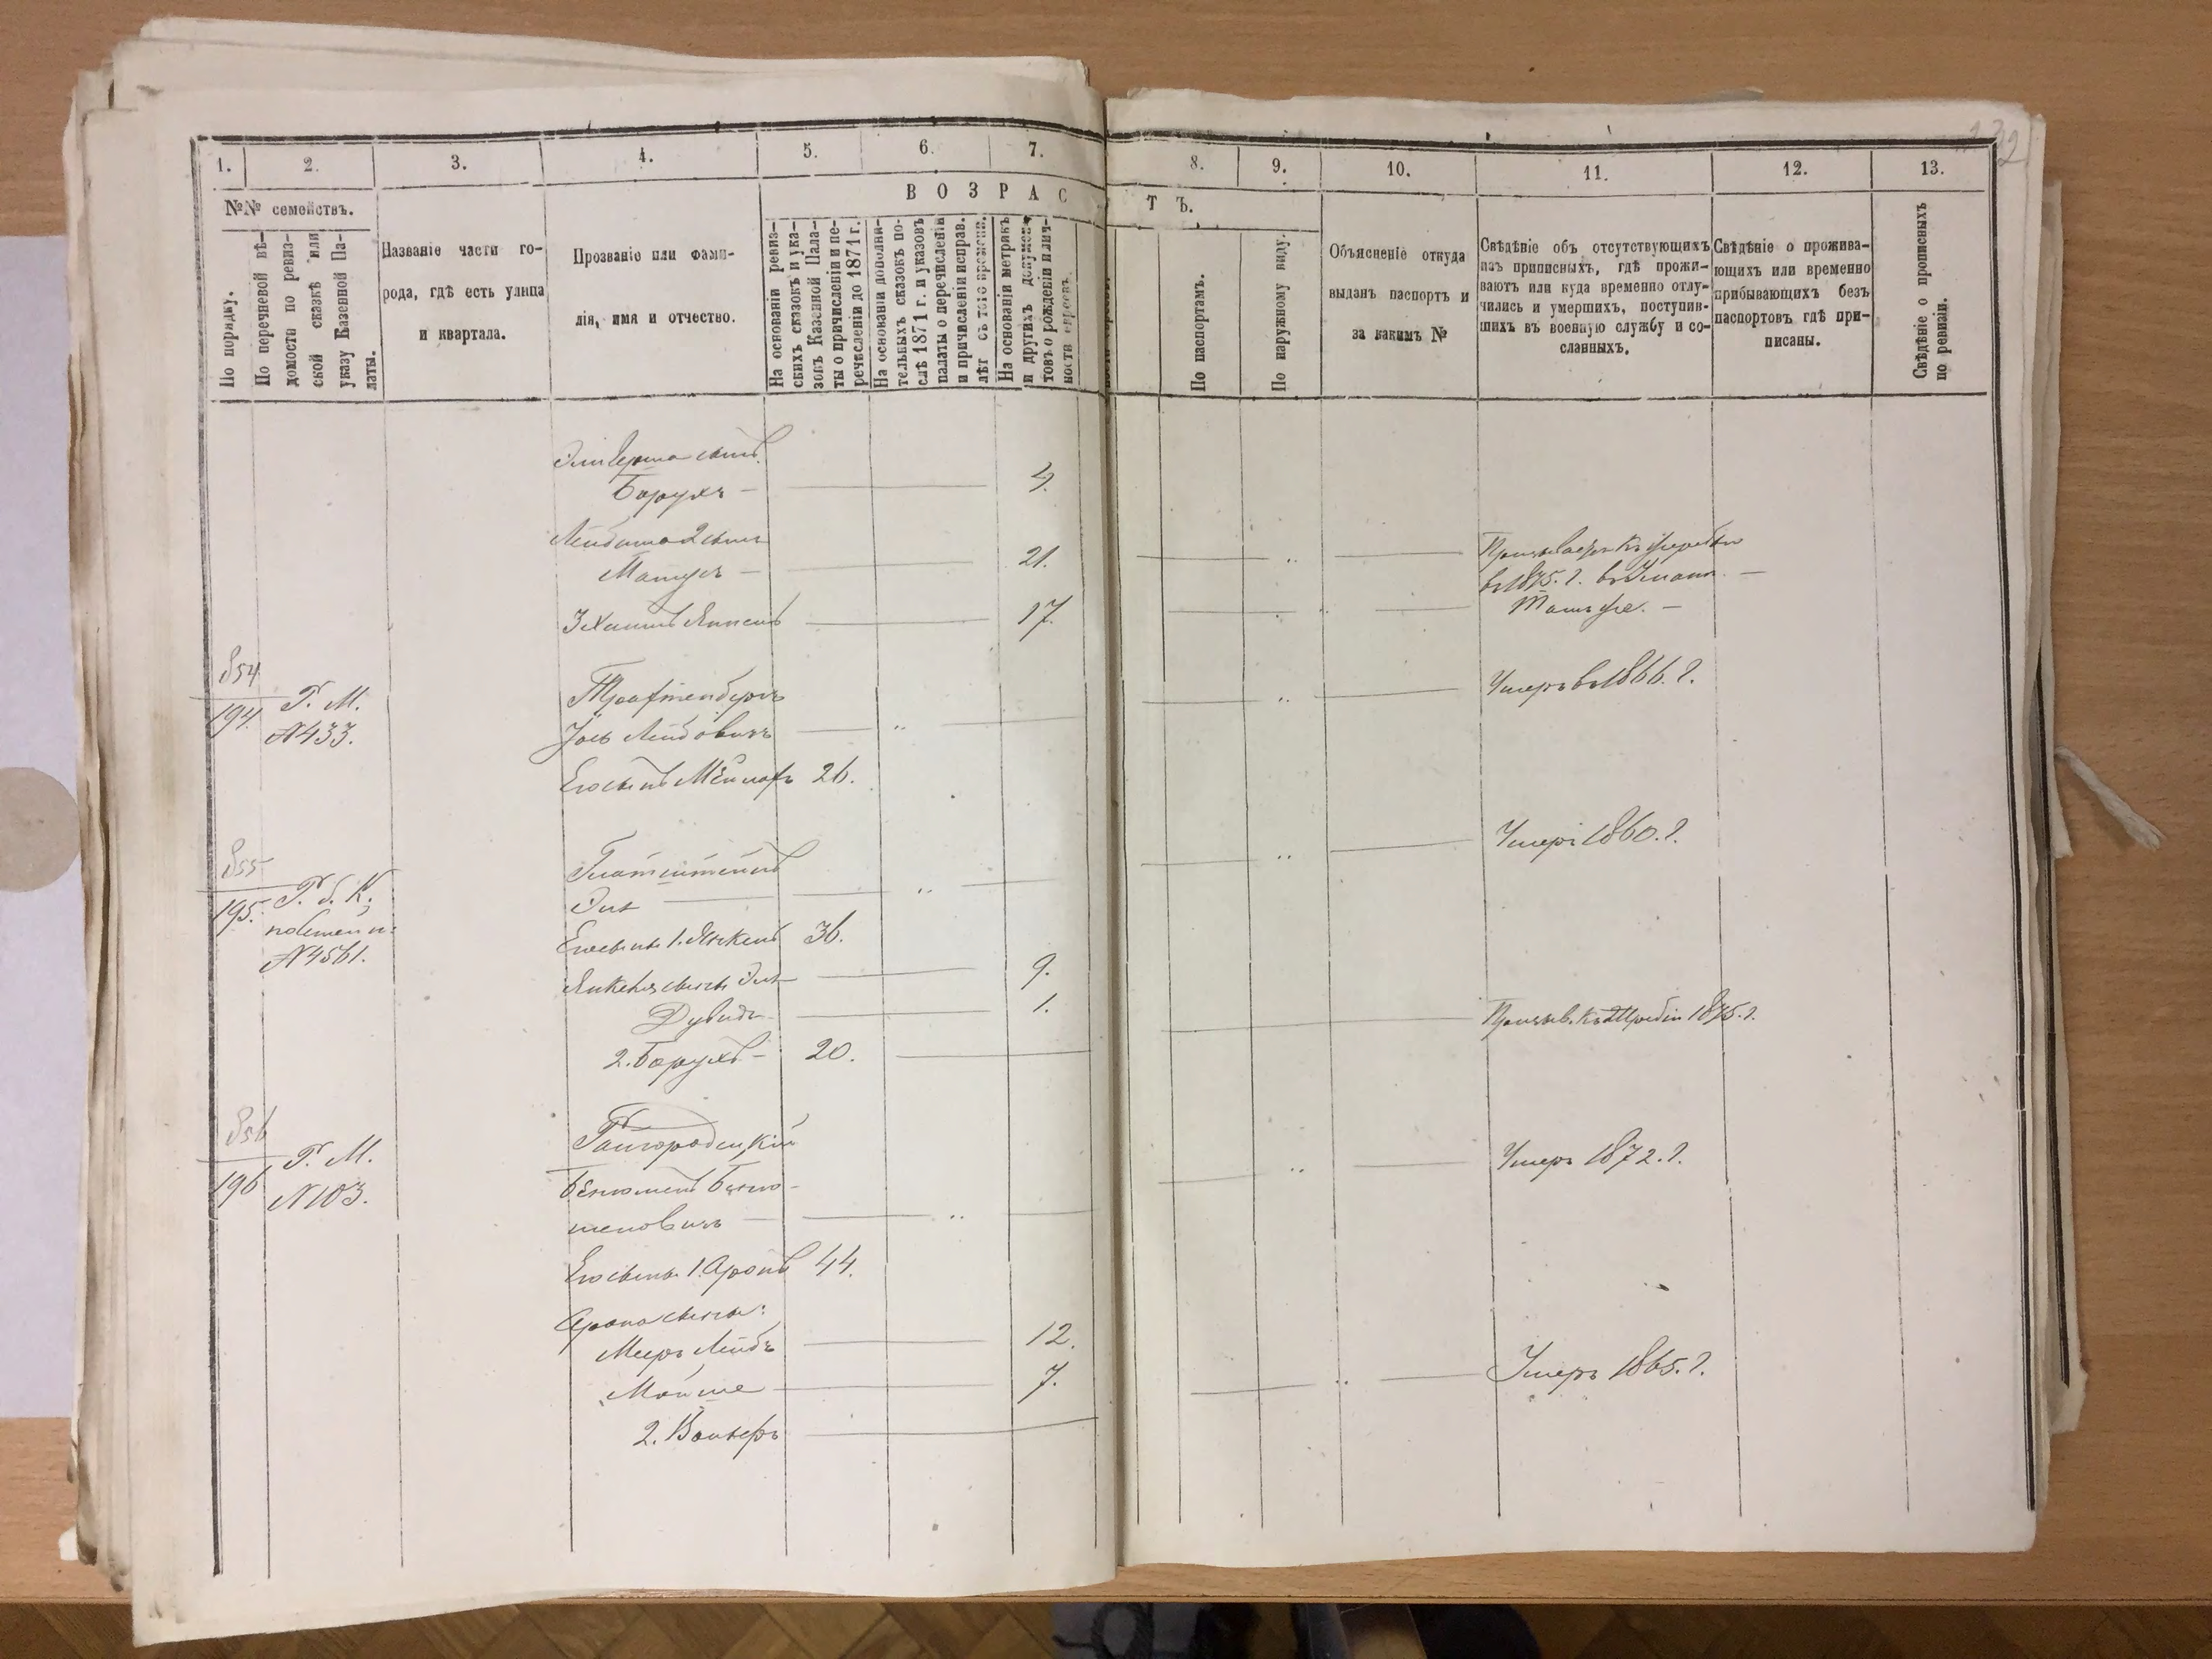 1.
2.
3.
4.
5.
6.
7.
8.
9.
10.
11.
12.
13.
№№ семействъ.
По порядку.
По перечневой вѣ-
домости по ревиз-
ской сказкѣ или
указу Казенной Па-
латы.
Названіе части го-
рода, гдѣ есть улица
и квартала.
Прозваніе или фами-
лія, имя и отчество.
ВОЗРАС
ТЪ.
На основаніи ревиз-
скихъ сказокъ и ука-
зовъ Казенной Пала-
ты о причисленіи и пе-
речисленіи до 1871 г.
На основаніи дополни-
тельныхъ сказокъ по-
слѣ 1871 г. и указовъ
палаты о перечисленіи
и причисленіи исправ.
лѣт съ того времени.
На основаніи метрикъ
и другихъ докумен-
товъ о рожденіи и лич-
ности евреевъ.
По паспортамъ.
По наружному виду.
Объясненіе откуда
выданъ паспортъ и
за какимъ №
Свѣдѣніе объ отсутствующихъ
изъ приписныхъ, гдѣ прожи-
ваютъ или куда временно отлу-
чились и умершихъ, поступив-
шихъ въ военную службу и со-
сланныхъ.
Свѣдѣніе о прожива-
ющихъ или временно
прибывающихъ безъ
паспортовъ гдѣ при-
писаны.
Свѣдѣніе о прописныхъ
по ревизіи.
сынъ
Борухъ — 4.
Лейбиша 2 сынъ
— 21.
3 Хаимъ Янкель 17.
854
194. Р. М.
№433.
Трахтенбергъ
Іось Лейбовичъ
Умеръ въ 1866. г.
Его сынъ 26.
855
195. Р. б. К.
№4561.
Глатштейнъ
Эль
Умеръ 1860. г.
Его сынъ 1. Янкель 36.
Янкеля сыны Эль 9.
Дувидъ 1.
2. Борухъ — 20.
1875. г.
856
196 Р. М.
№103.
Гайгородецкій
Беньюменъ Бенью-
меновичъ
Умеръ 1872. г.
Его сыны 1. Аронъ 44.
Арона сыны:
Мееръ Лейбъ 12.
Мойше 7.
2. Вольфъ
Умеръ 1865. г.